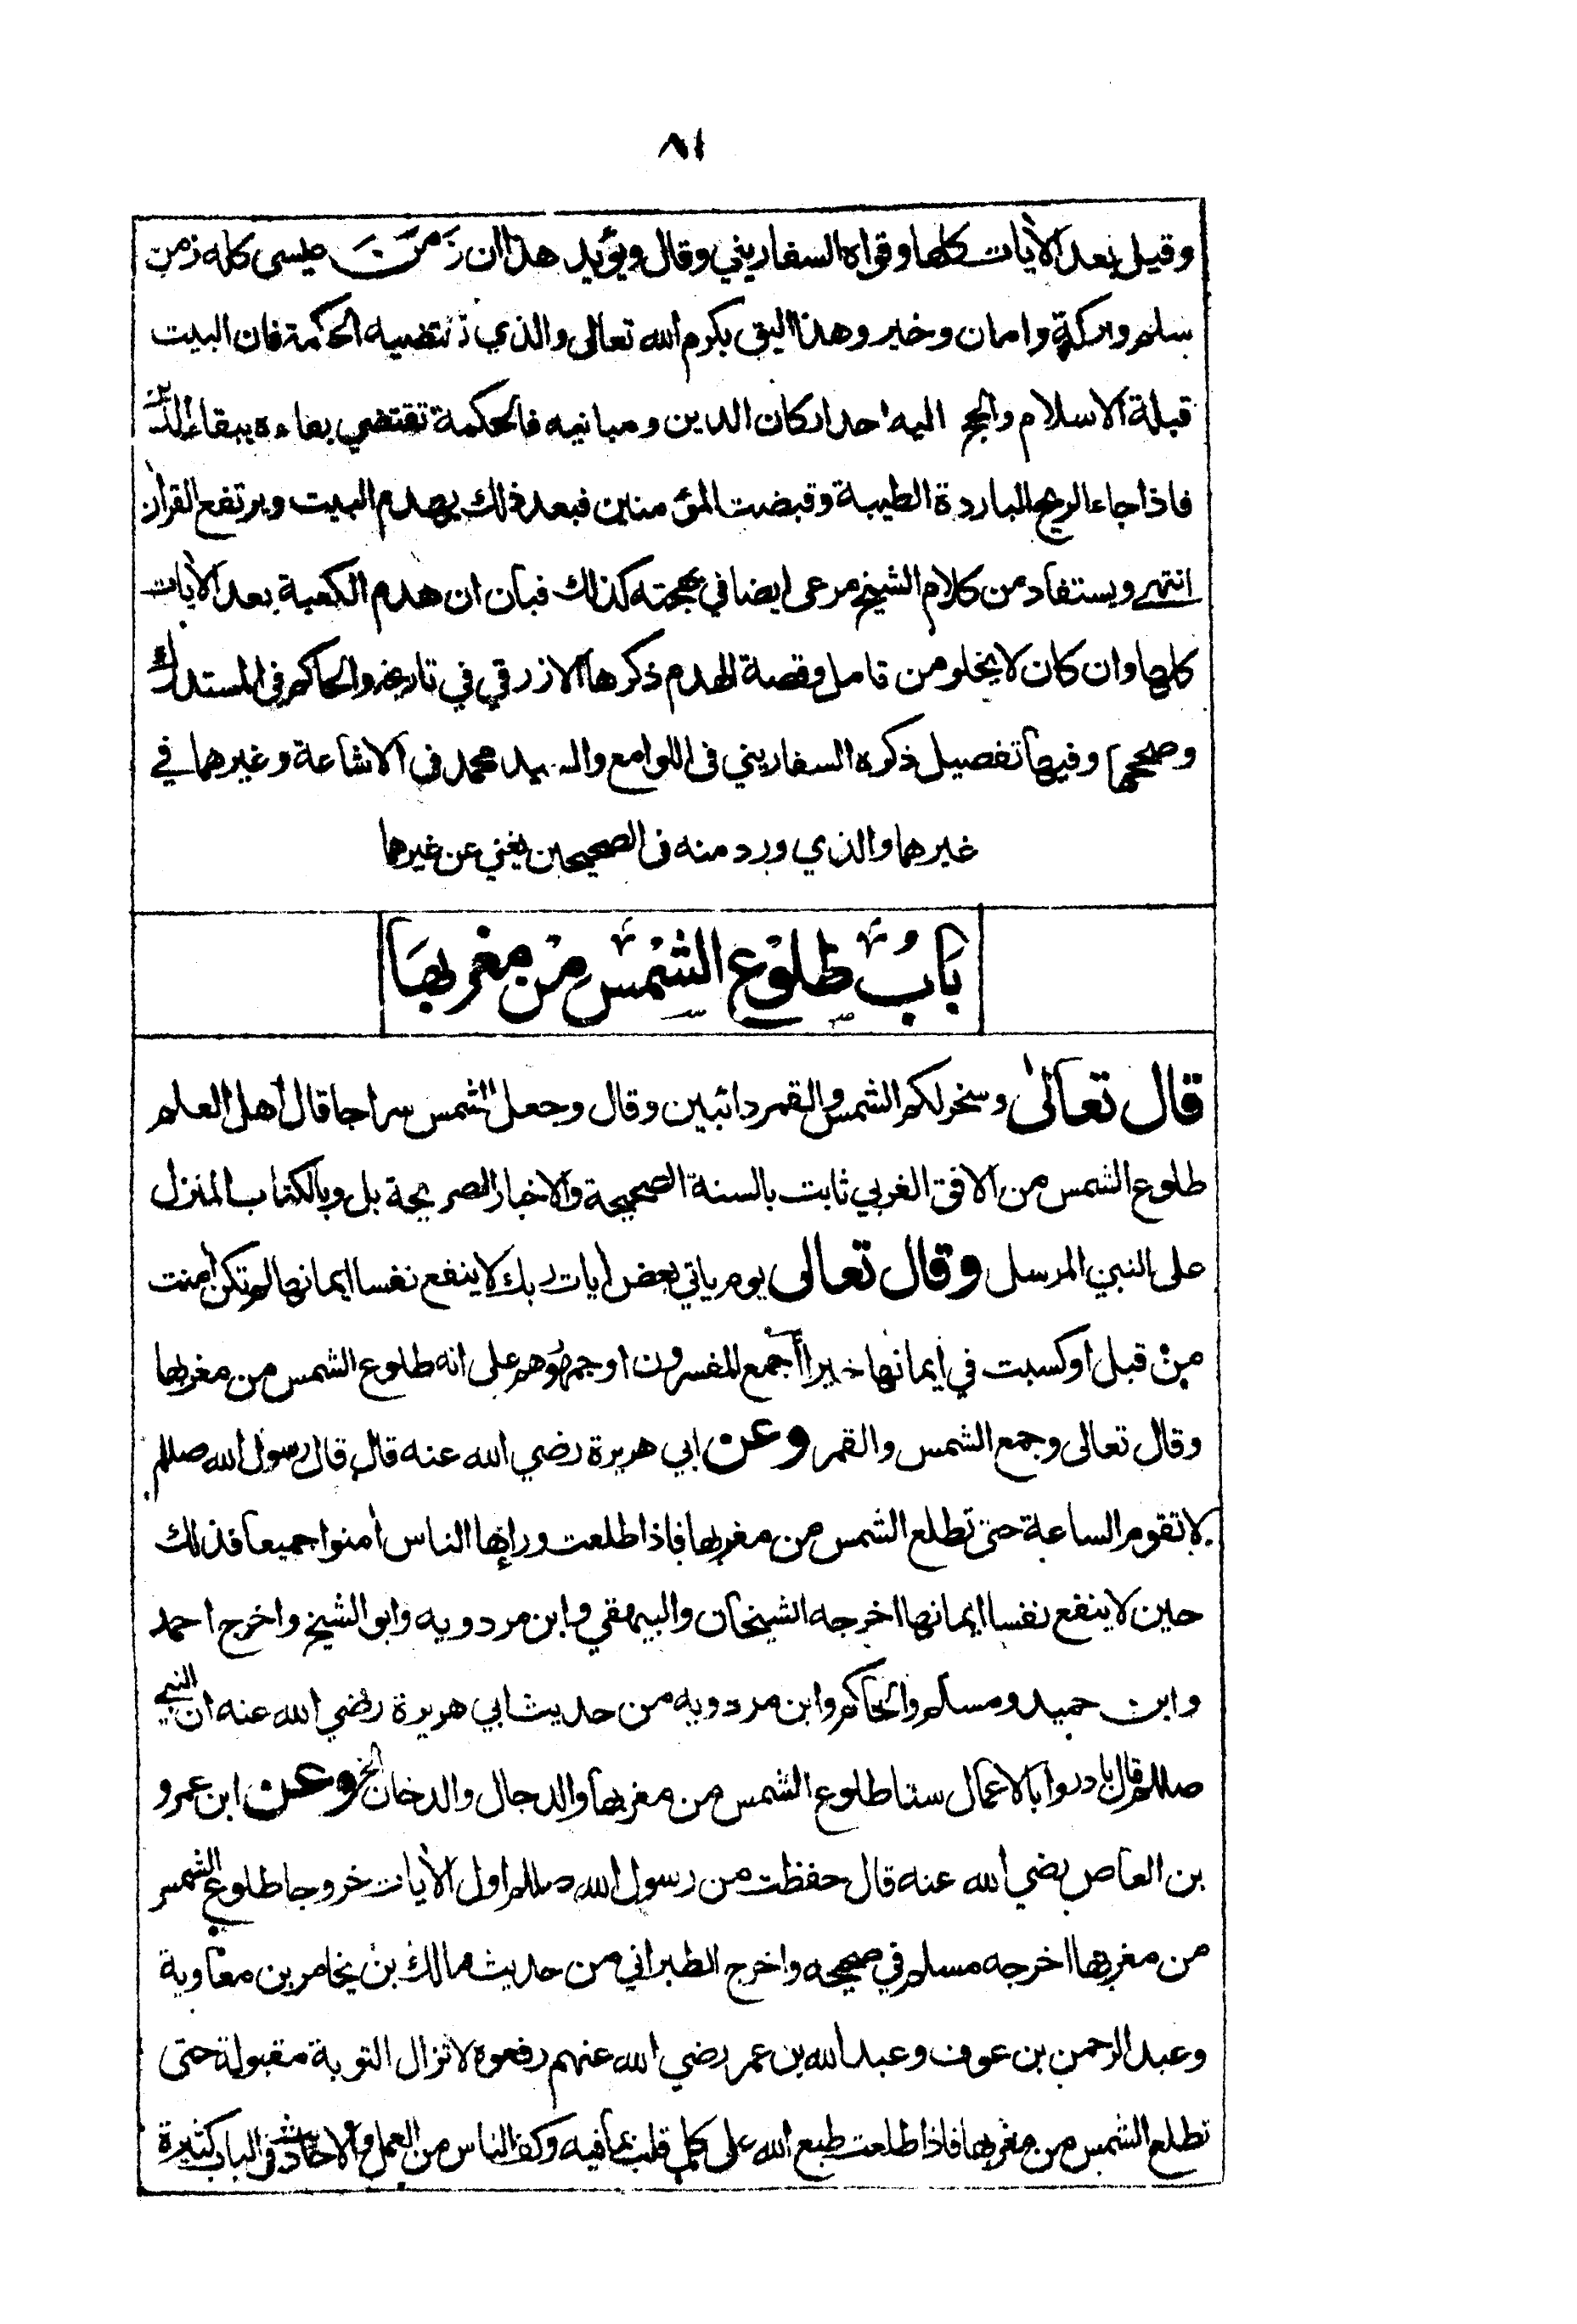 ٨١
وقيل بعد الأيات كلها وقواه السفاريني وقال ويؤيد هذا ان زَمَنَ عيسى كله زمن
سلم وبركة وامان وخير وهذا اليق بكرم الله تعالى والذي تقتضيه الحكمة فان البيت
قبلة الاسلام والحج اليه احد اركان الدين ومبانيه فالحكمة تقتضي بقاءه ببقاء الدين
فاذا جاء الريح الباردة الطيبة وقبضت المؤمنين فبعد ذلك يهدم البيت ويرتفع القرأن
انتهى ويستفاد من كلام الشيخ مرعي ايضا في بهجته كذلك فبان ان هدم الكعبة بعد الأيات
كلها وان كان لا يخلو من تامل وقصة الهدم ذكرها الازرقي في تاريخه والحاكم في المستدرك
وصححها وفيها تفصيل ذكره السفاريني في اللوامع والسيد محمد في الاشاعة وغيرهما في
غيرهما والذي ورد منه في الصحيحين يغني عن غيرهما
بَابُ طلوع الشمس من مغربهَا
قال تعالى وسخر لكم الشمس والقمر دائبين وقال وجعل الشمس سراجا قال أهل العلم
طلوع الشمس من الافق الغربي ثابت بالسنة الصحيحة والاخبار الصريحة بل وبالكتاب المنزل
على النبي المرسل وقال تعالى يوم ياتي بعض أيات ربك لا ينفع نفسا ايمانها لم تكن أمنت
من قبل او كسبت في ايمانها خيرا أجمع المفسرون او جمهورهم على انه طلوع الشمس من مغربها
وقال تعالى وجمع الشمس والقمر وعن ابي هريرة رضي الله عنه قال قال رسول الله صللم
لا تقوم الساعة حتى تطلع الشمس من مغربها فاذا طلعت وراها الناس أمنوا جميعا فذلك
حين لا ينفع نفسا ايمانها اخرجه الشيخان والبيهقي وابن مردويه وابو الشيخ واخرج احمد
وابن حميد ومسلم والحاكم وابن مردويه من حديث ابي هريرة رضي الله عنه ان النبي
صللم قال بادروا بالاعمال ستا طلوع الشمس من مغربها والدجال والدخان الخ وعن ابن عمرو
بن العاص رضي الله عنه قال حفظت من رسول الله صللم اول الأيات خروجا طلوع الشمس
من مغربها اخرجه مسلم في صحيحه واخرج الطبراني من حديث مالك بن يخامر بن معاوية
وعبد الرحمن بن عوف وعبد الله بن عمر رضي الله عنهم رفعوه لا تزال التوبة مقبولة حتى
تطلع الشمس من مغربها فاذا طلعت طبع الله على كل قلب بما فيه وكف الناس من العمل والاحاديث في الباب كثيرة